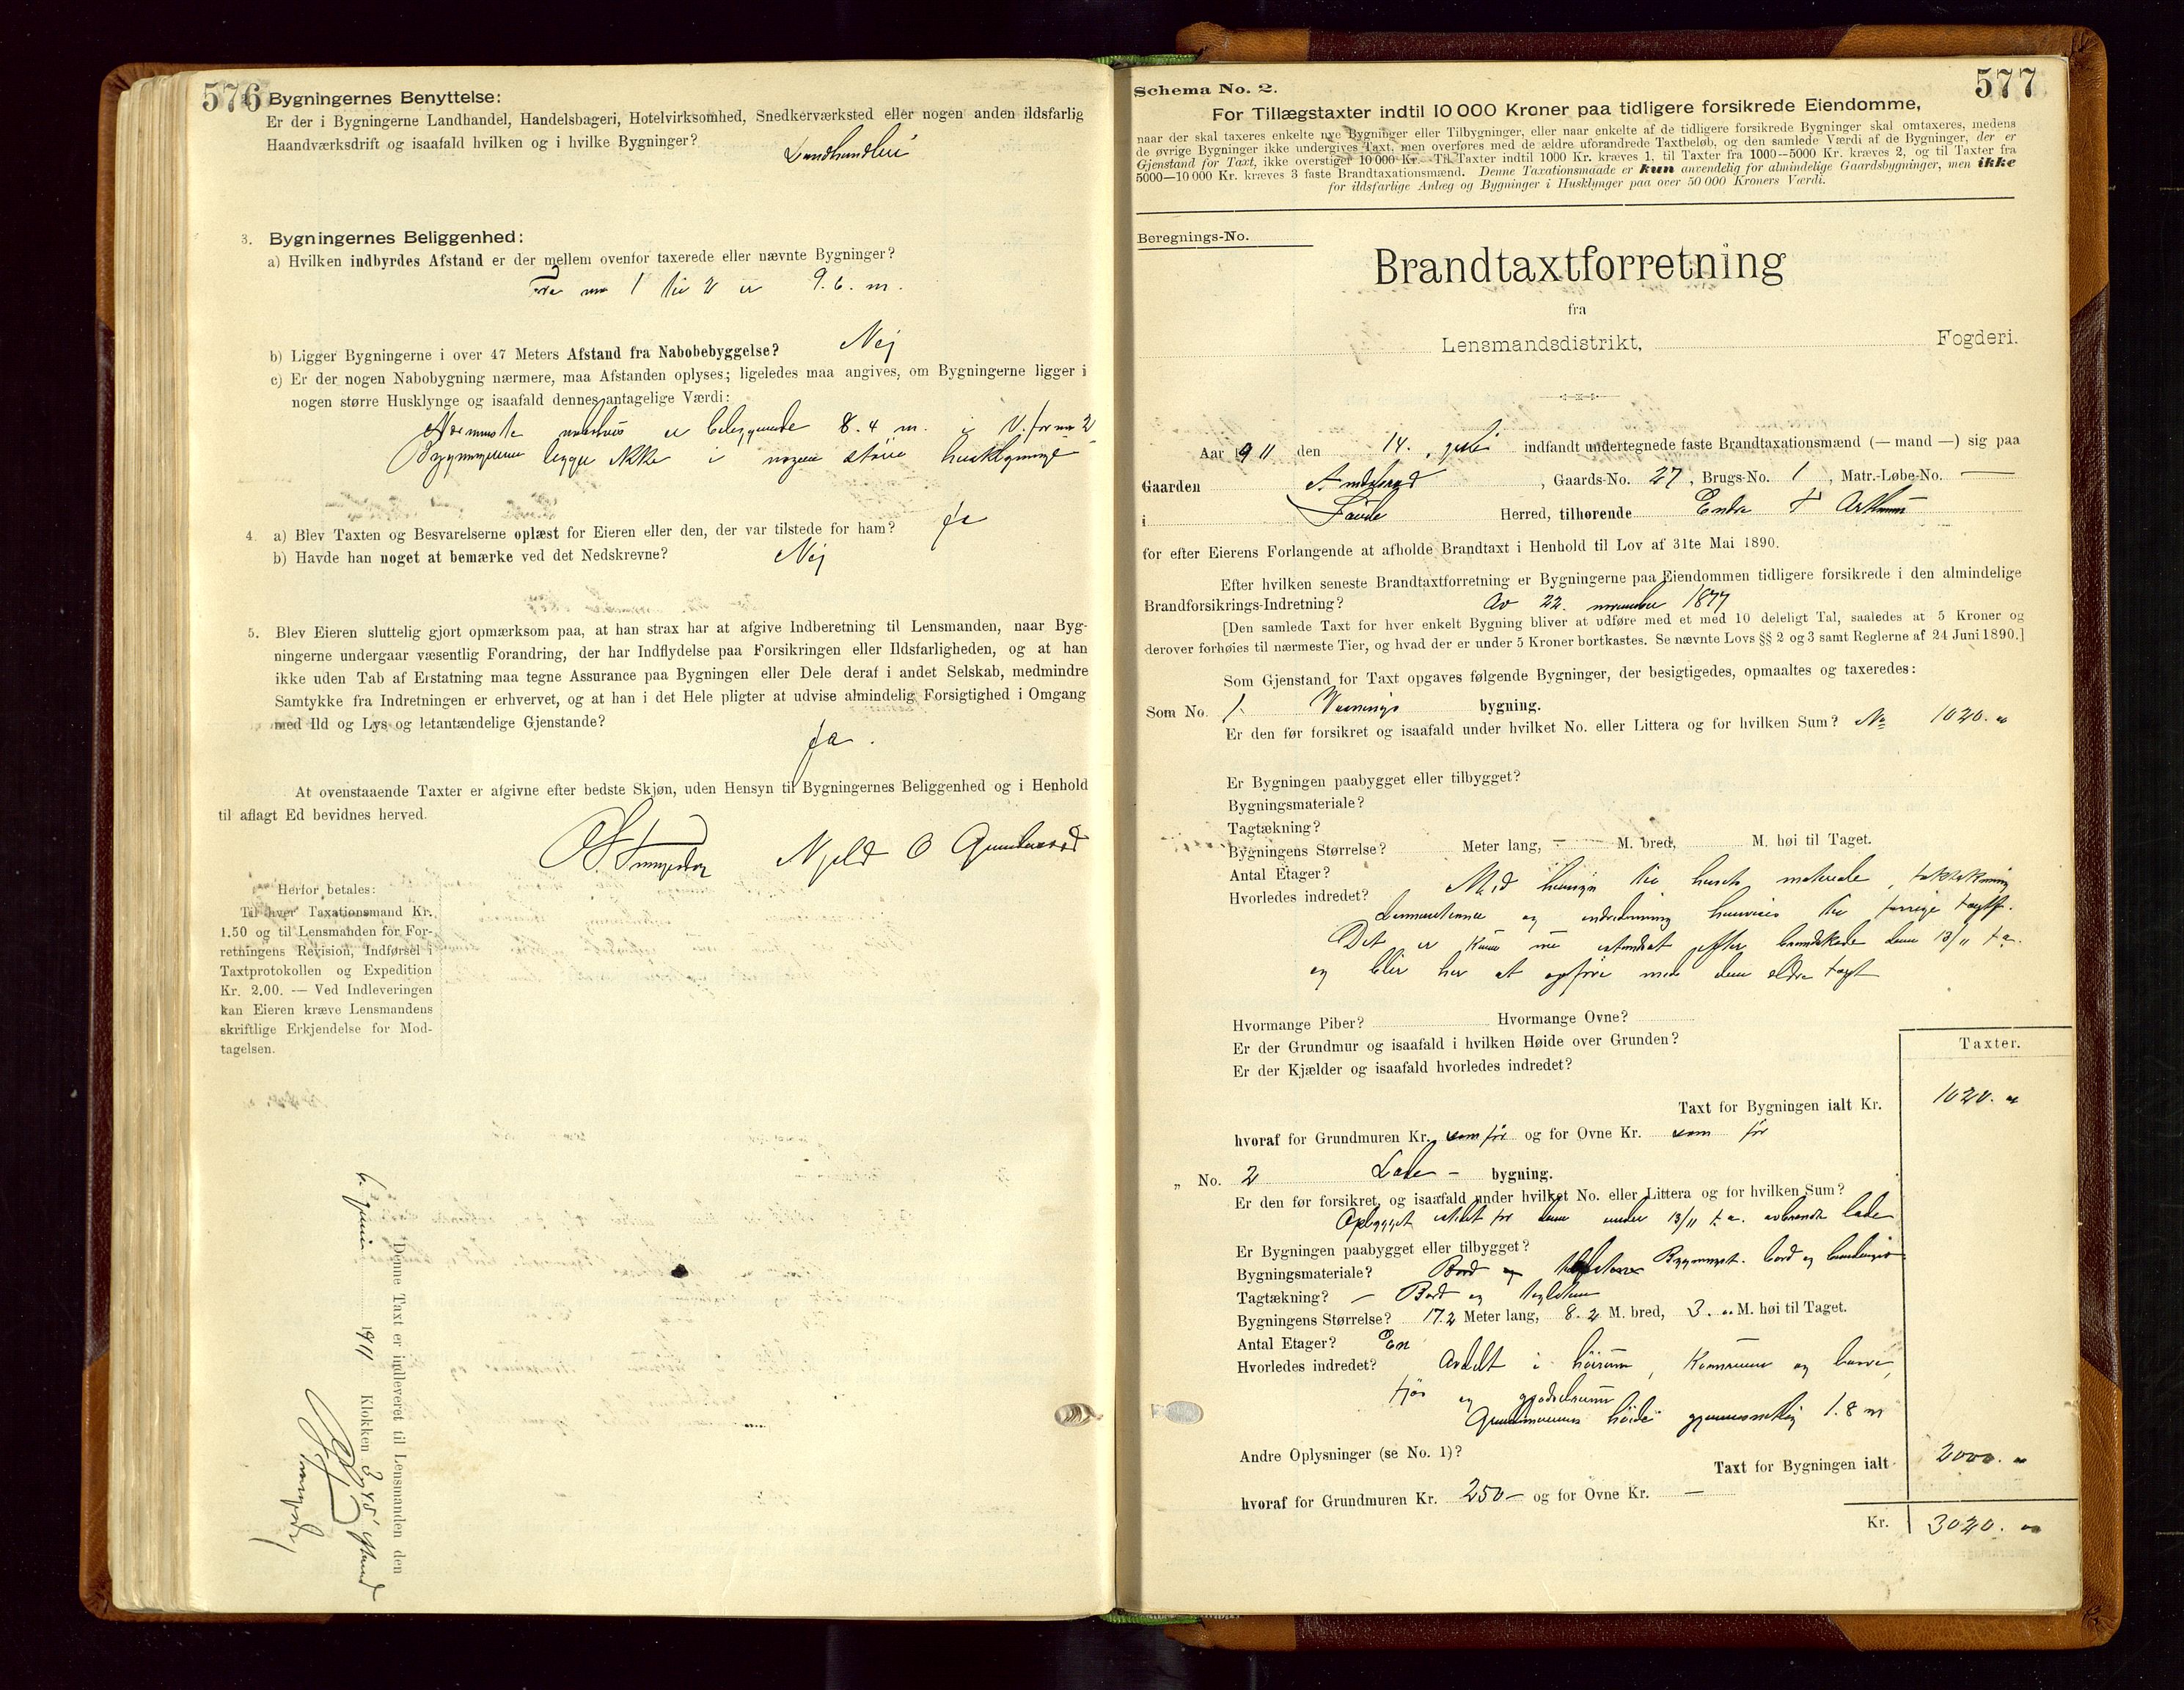 576
Bygningernes Benyttelse:
Er der i Bygningerne Landhandel, Handelsbageri, Hotelvirksomhed, Snedkerværksted eller nogen anden ildsfarlig
Haandværksdrift og isaafald hvilken og i hvilke Bygninger?
Landhandleri
3. Bygningernes Beliggenhed:
a) Hvilken indbyrdes Afstand er der mellem ovenfor taxerede eller nævnte Bygninger?
Fra no 1 til 2 er 9.6. m.
b) Ligger Bygningerne i over 47 Meters Afstand fra Nabobebyggelse? Nej
c) Er der nogen Nabobygning nærmere, maa Afstanden oplyses; ligeledes maa angives, om Bygningerne ligger i
nogen større Husklynge og isaafald dennes antagelige Værdi:
Nærmeste nabohus er beliggende 8.4 m. i V. for no 2
Bygningerne ligge ikke i nogen større husklynge
4. a) Blev Taxten og Besvarelserne oplæst for Eieren eller den, der var tilstede for ham? Ja
b) Havde han noget at bemærke ved det Nedskrevne? Nej
5. Blev Eieren sluttelig gjort opmærksom paa, at han strax har at afgive Indberetning til Lensmanden, naar Byg-
ningerne undergaar væsentlig Forandring, der har Indflydelse paa Forsikringen eller Ildsfarligheden, og at han
ikke uden Tab af Erstatning maa tegne Assurance paa Bygningen eller Dele deraf i andet Selskab, medmindre
Samtykke fra Indretningen er erhvervet, og at han i det Hele pligter at udvise almindelig Forsigtighed i Omgang
med Ild og Lys og letantændelige Gjenstande?
Ja.
At ovenstaaende Taxter er afgivne efter bedste Skjøn, uden Hensyn til Bygningernes Beliggenhed og i Henhold
til aflagt Ed bevidnes herved.
Njeld O
Herfor betales:
Til hver Taxationsmand Kr.
1.50 og til Lensmanden for For-
retningens Revision, Indførsel i
Taxtprotokollen og Expedition
Kr. 2.00. — Ved Indleveringen
kan Eieren kræve Lensmandens
skriftlige Erkjendelse for Mod-
tagelsen.
Denne Taxt er indleveret til Lensmanden den
6. juni 1911 Klokken 3,45
577
Schema No. 2.
For Tillægstaxter indtil 10 000 Kroner paa tidligere forsikrede Eiendomme,
naar der skal taxeres enkelte nye Bygninger eller Tilbygninger, eller naar enkelte af de tidligere forsikrede Bygninger skal omtaxeres, medens
de øvrige Bygninger ikke undergives Taxt, men overføres med de ældre uforandrede Taxtbeløb, og den samlede Værdi af de Bygninger, der er
Gjenstand for Taxt, ikke overstiger 10 000 Kr. Til Taxter indtil 1000 Kr. kræves 1, til Taxter fra 1000—5000 Kr. kræves 2, og til Taxter fra
5000—10 000 Kr. kræves 3 faste Brandtaxationsmænd. Denne Taxationsmaade er kun anvendelig for almindelige Gaardsbygninger, men ikke
for ildsfarlige Anlæg og Bygninger i Husklynger paa over 50 000 Kroners Værdi.
Beregnings-No.
Brandtaxtforretning
fra
Lensmandsdistrikt, Fogderi.
Aar 1911 den 14. juli indfandt undertegnede faste Brandtaxationsmænd (— mand —) sig paa
Gaarden , Gaards-No. 27, Brugs-No. 1, Matr.-Løbe-No. —
i Herred, tilhørende Endre
for efter Eierens Forlangende at afholde Brandtaxt i Henhold til Lov af 31te Mai 1890.
Efter hvilken seneste Brandtaxtforretning er Bygningerne paa Eiendommen tidligere forsikrede i den almindelige
Brandforsikrings-Indretning? Av 22. november 1877
[Den samlede Taxt for hver enkelt Bygning bliver at udføre med et med 10 deleligt Tal, saaledes at 5 Kroner og
derover forhøies til nærmeste Tier, og hvad der er under 5 Kroner bortkastes. Se nævnte Lovs §§ 2 og 3 samt Reglerne af 24 Juni 1890.]
Som Gjenstand for Taxt opgaves følgende Bygninger, der besigtigedes, opmaaltes og taxeredes:
Som No. 1. Vaanings bygning.
Er den før forsikret og isaafald under hvilket No. eller Littera og for hvilken Sum? No 1020.
Er Bygningen paabygget eller tilbygget?
Bygningsmateriale?
Tagtækning?
Bygningens Størrelse? Meter lang, — M. bred, M. høi til Taget.
Antal Etager?
Hvorledes indredet? Med hensyn til husets materiale, taktækning
og indredning henvises til forrige taxtf.
Det er kun efter den 13/11 f.a.
og blir her at opføre med den eldre taxt
Hvormange Piber? Hvormange Ovne?
Er der Grundmur og isaafald i hvilken Høide over Grunden?
Er der Kjælder og isaafald hvorledes indredet?
Taxter.
Taxt for Bygningen ialt Kr. 1020.
hvoraf for Grundmuren Kr. som før og for Ovne Kr. som før
„ No. 2 Lade- bygning.
Er den før forsikret, og isaafald under hvilket No. eller Littera og for hvilken Sum?
Opbygget istedet for den under 13/11 f.a. avbrændte lade
Er Bygningen paabygget eller tilbygget?
Bygningsmateriale? Bord og
Tagtækning? — Bord og taglsten
Bygningens Størrelse? 17.2 Meter lang, 8.2 M. bred, 3. M. høi til Taget.
Antal Etager? En
Hvorledes indredet? Avdelt i høirum,
fjøs og gjødselrum
Grundmurens høide gjennemsnitlig 1.8 m
Andre Oplysninger (se No. 1)?
Taxt for Bygningen ialt 2000.
hvoraf for Grundmuren Kr. 250— og for Ovne Kr. —
Kr. 3020.